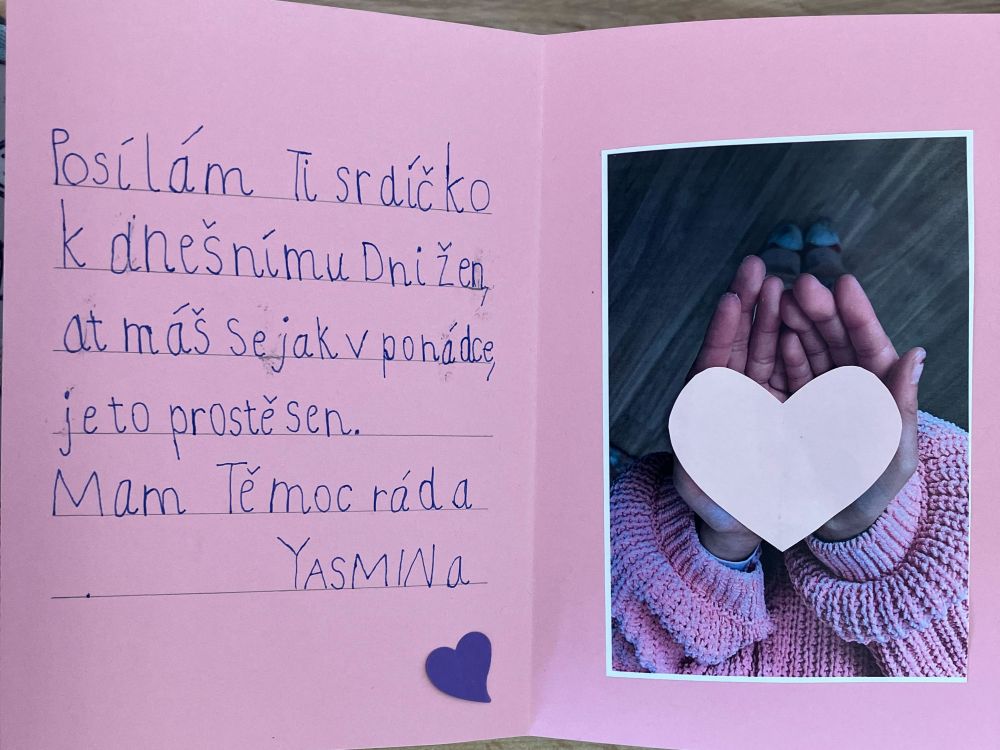 Posílám Ti srdíčko
k dnešnímu Dni žen,
at máš se jak v ponádce,
je to prostě sen.
Mam Tě moc ráda
YASMINa